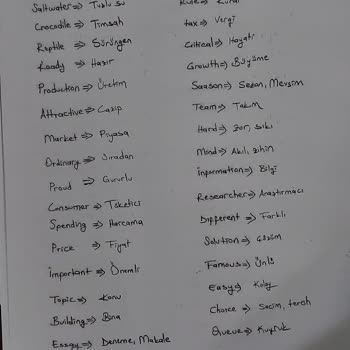 Saltwater ⇒ Tuzlu su
Crocodile ⇒ Timsah
Reptile ⇒ Sürüngen
Ready ⇒ Hazır
Production ⇒ Üretim
Attractive ⇒ Cazip
Market ⇒ Piyasa
Ordinary ⇒ Sıradan
Proud ⇒ Gururlu
Consumer ⇒ Tüketici
Spending ⇒ Harcama
Price ⇒ Fiyat
important ⇒ Önemli
Topic ⇒ Konu
Building ⇒ Bina
Essay ⇒ Deneme, Makale
Rule ⇒ Kural
tax ⇒ Vergi
Critical ⇒ Hayati
Growth ⇒ Büyüme
Season ⇒ Sezon, Mevsim
Team ⇒ Takım
Hard ⇒ Zor, sıkı
Mind ⇒ Akıl, zihin
information ⇒ Bilgi
Researcher ⇒ Araştırmacı
Different ⇒ Farklı
Solution ⇒ Çözüm
Famous ⇒ Ünlü
Easy ⇒ Kolay
Choice ⇒ Seçim, tercih
Queue ⇒ Kuyruk